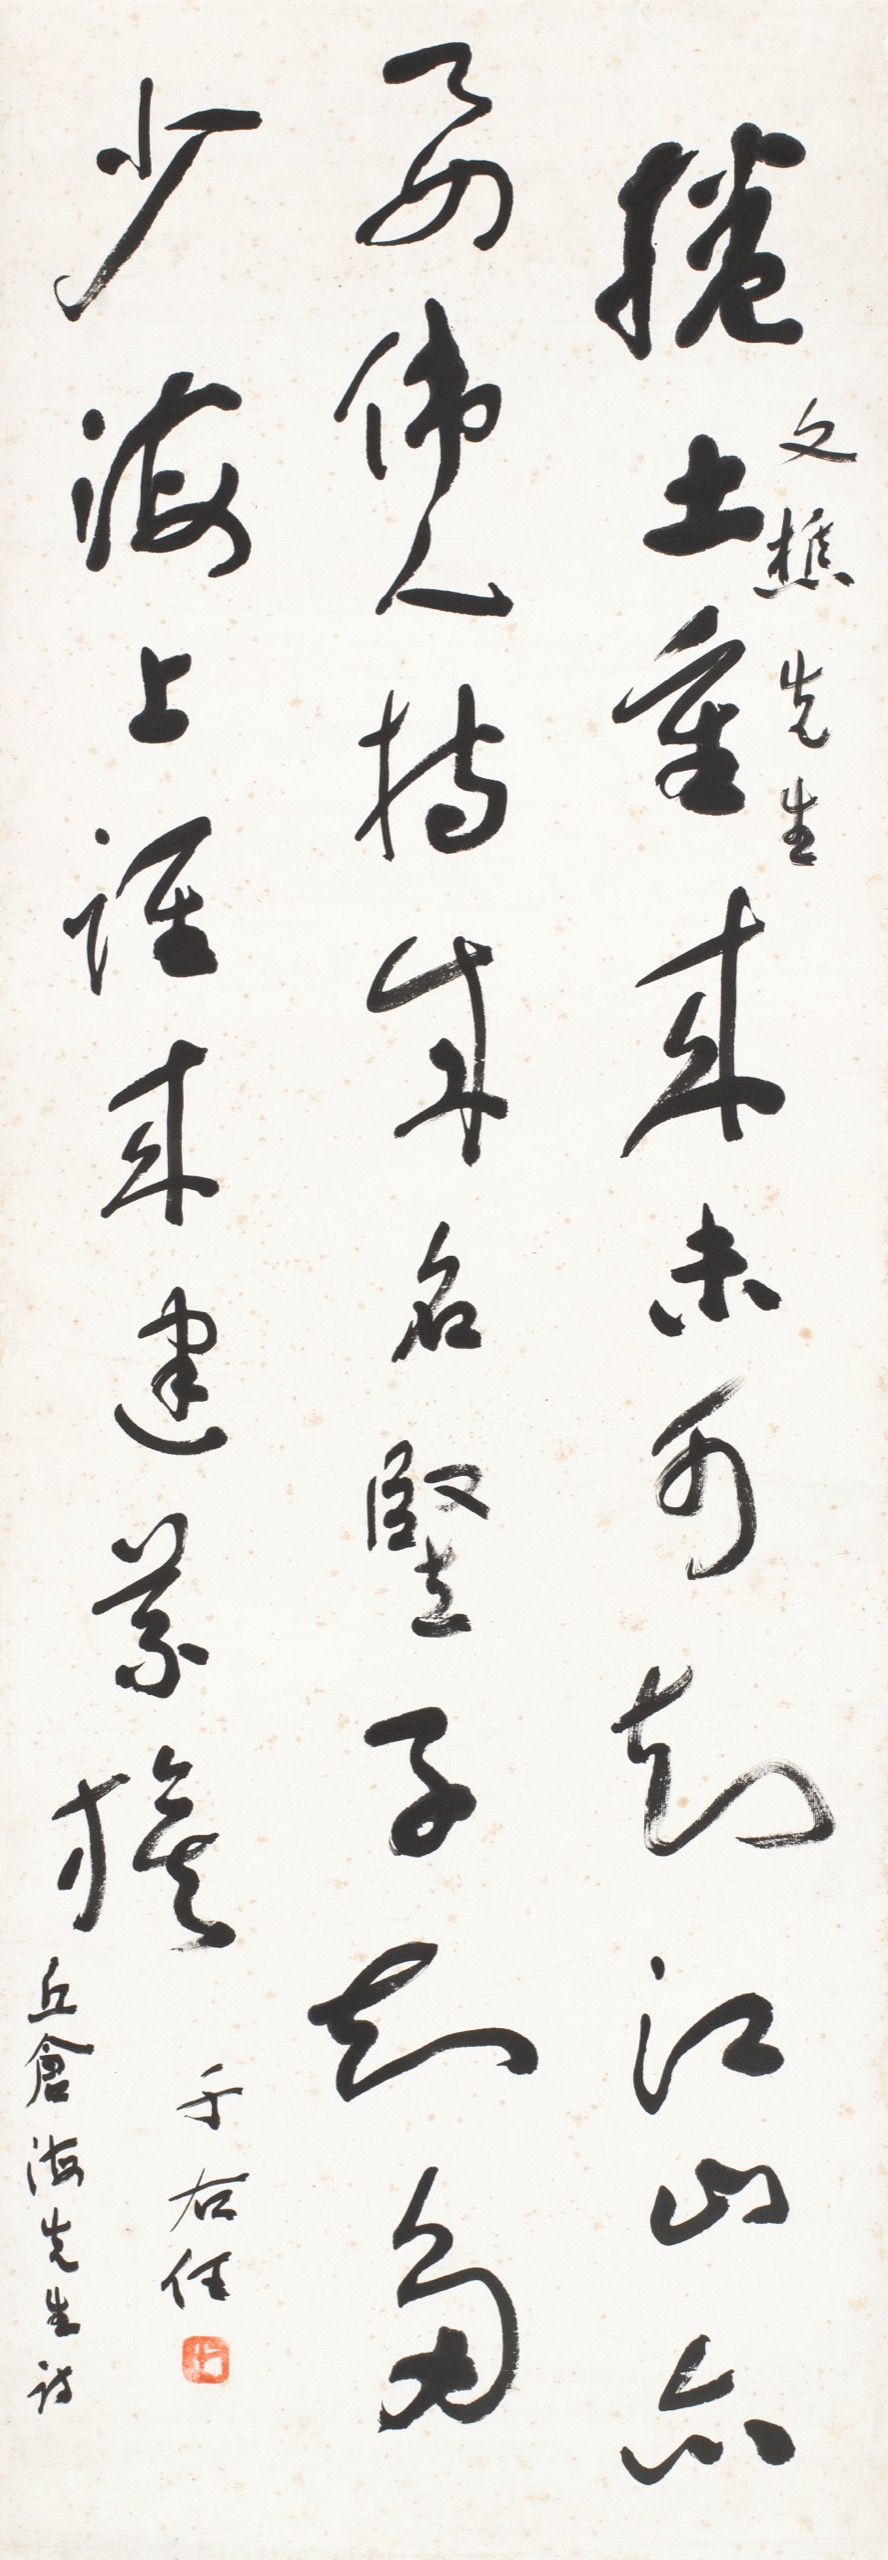 捲土重來未可知江山亦
文樵先生
要偉人持成名豎子知多
少海上誰來建義旗
于右任
丘倉海先生詩